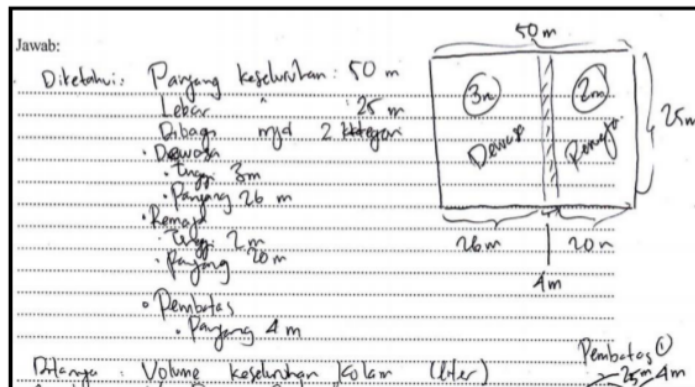 Jawab:
Diketahui: Panjang keseluruhan: 50 m
Lebar " : 25 m
Dibagi mjd 2 kategori
• Dewasa
• Tinggi 3m
• Panjang 26 m
• Remaja
• Tinggi 2 m
• Panjang 20 m
• Pembatas
• Panjang 4 m
Ditanya: Volume keseluruhan kolam (liter)
50 m
3m
2m
Dewasa
Remaja
25m
26m
20m
4m
Pembatas ①
25m 4m